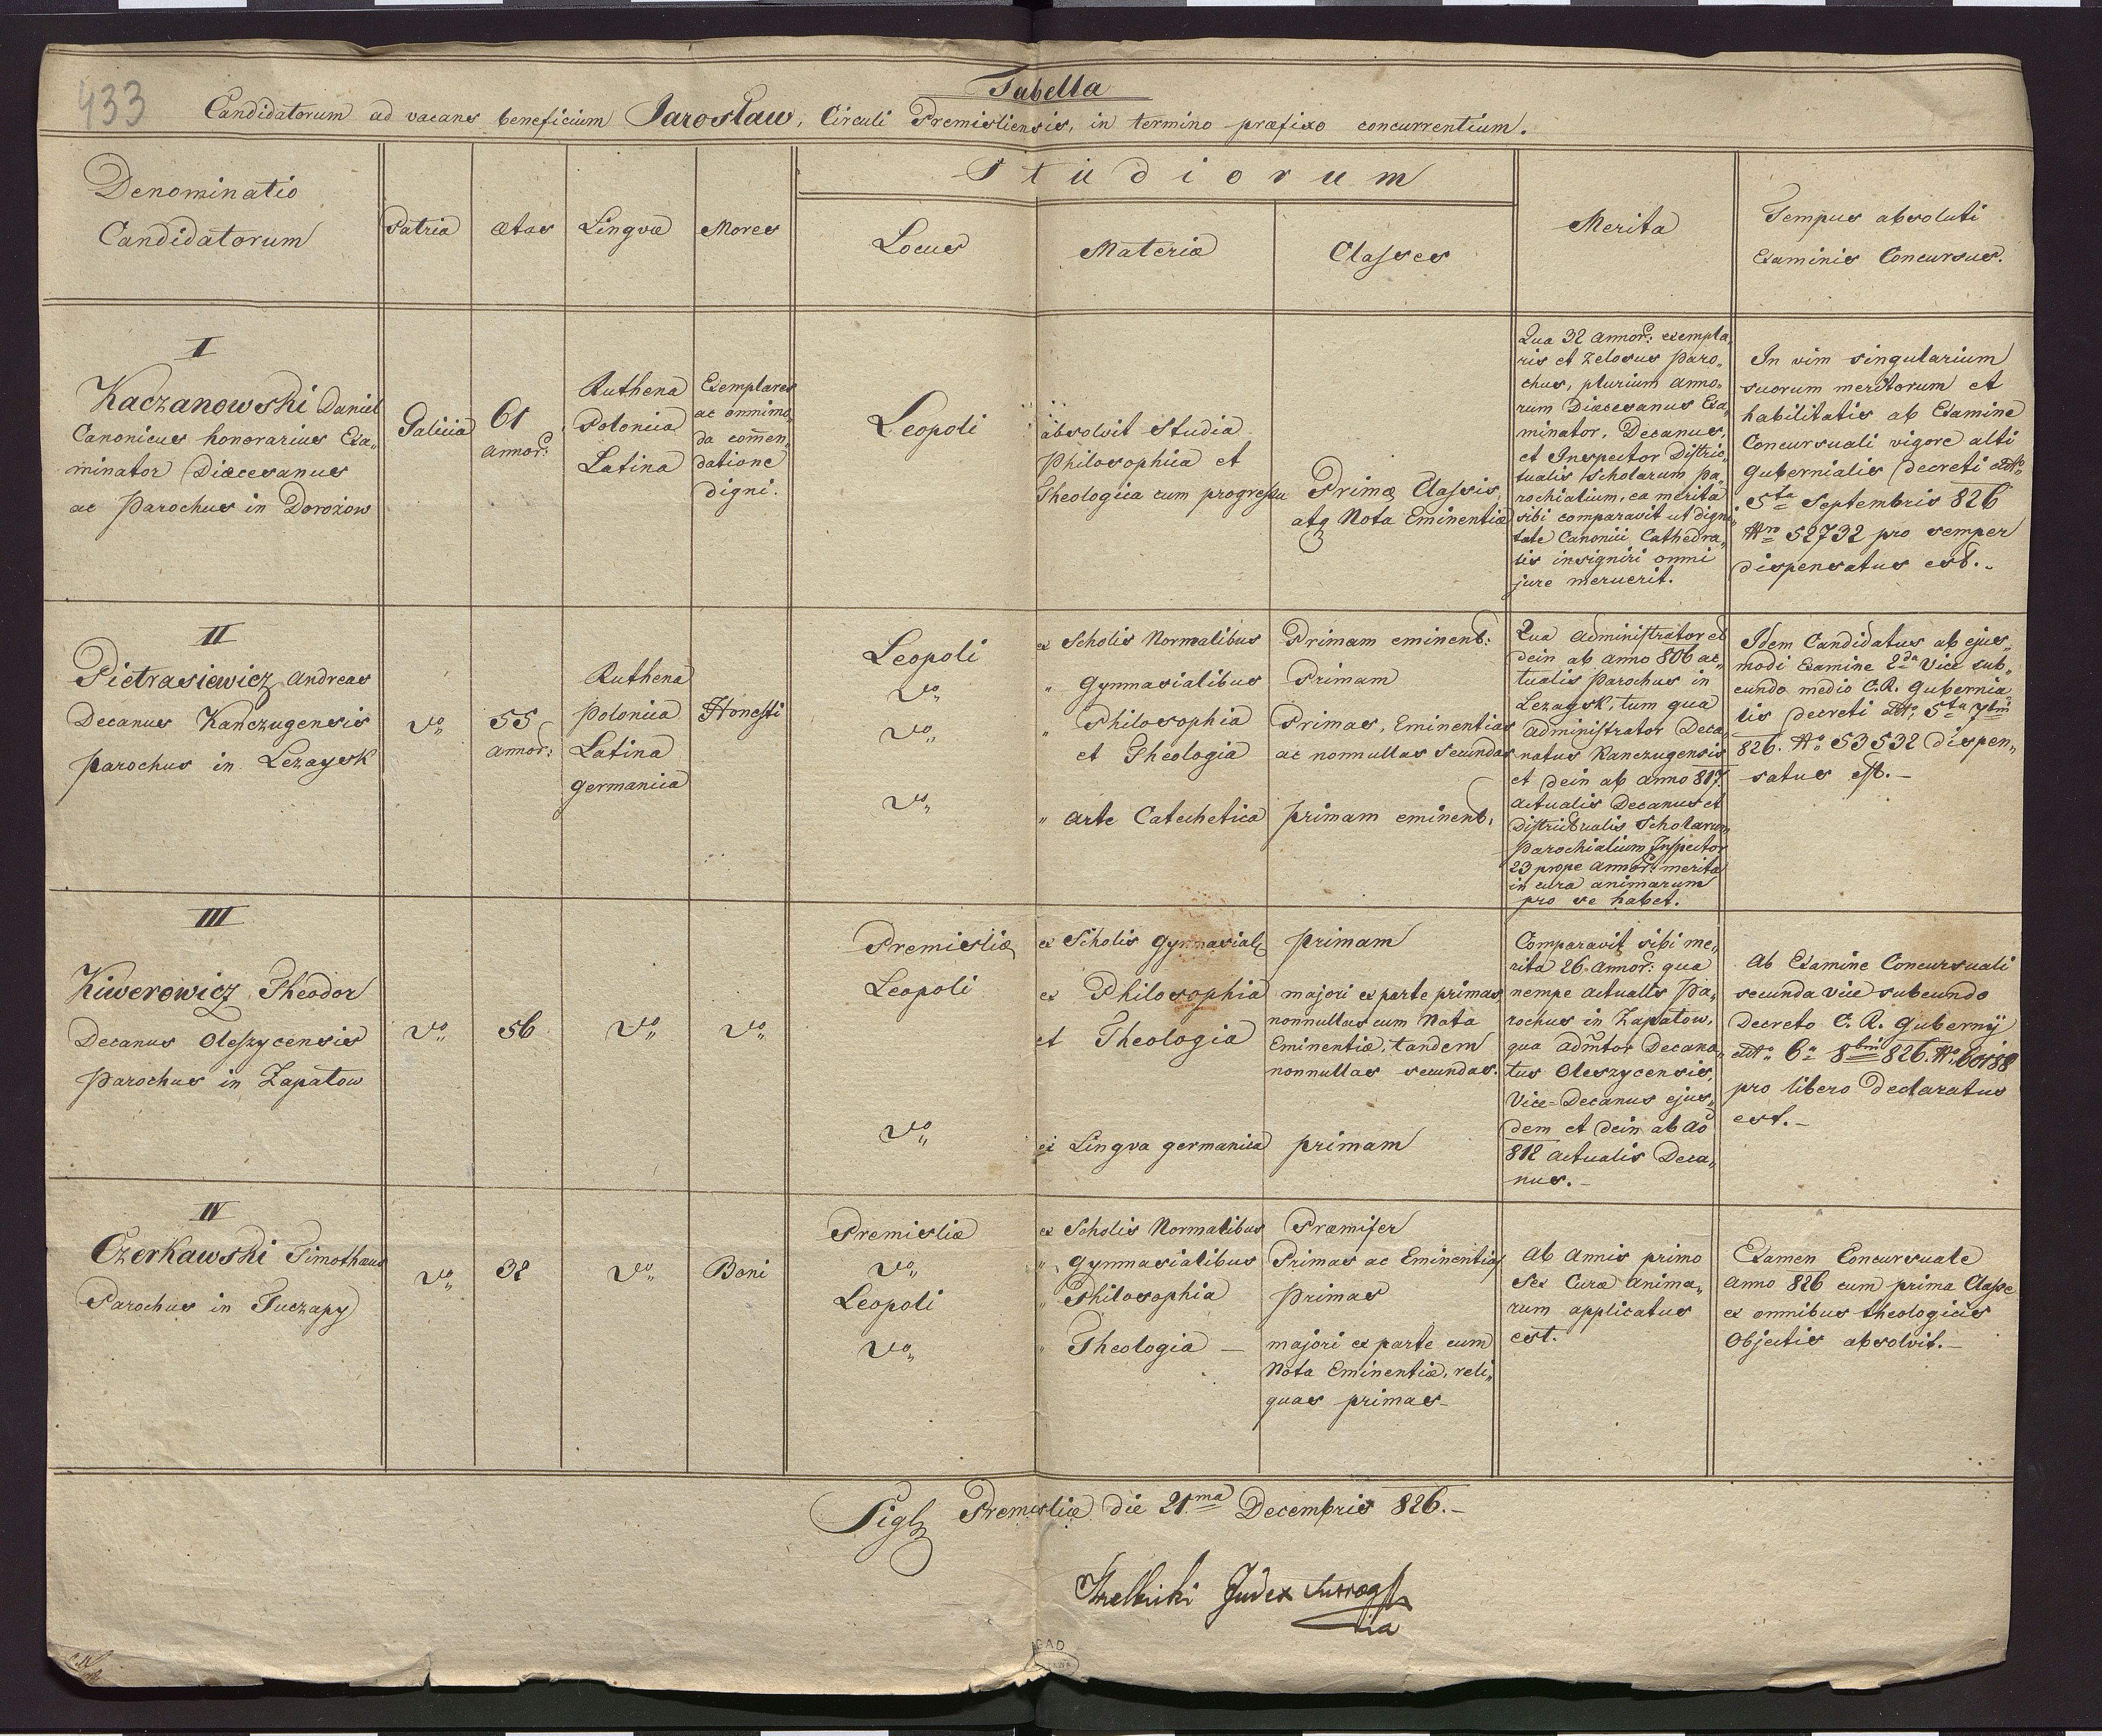 433
Tabella
Candidatorum ad vacans beneficium Jarosław, Circuli Premisliensis, in termino præfixo concurrentium.
Denominatio
Candidatorum
Patria
ætas
Lingvæ
Mores
Studiorum
Locus
Materiæ
Classes
Merita
Tempus absoluti
Examinis Concursus.
I
Kaczanowski Daniel
Canonicus honorarius Exa„
minator Diæcesanus
ac Parochus in Dorożow
Galicia
61
annor:
Ruthena
Polonica
Latina
Exemplares
ac omnimo„
da comen„
datione
digni.
Leopoli
absolvit Studia
Philosophica et
Theologica cum progressu
Primæ Classis
atq Nota Eminentiæ
Qua 32 annor: exempla„
ris et zelosus Paro„
chus, plurium anno„
rum Diæcesanus Exa„
minator, Decanus,
et Inspector Distric„
tualis Scholarum Pa„
rochialium, ea merita
sibi comparavit ut digni„
tate Canonici Cathedra„
lis insigniri omni
jure meruerit.
In vim singularium
suorum meritorum et
habilitatis ab Examine
Concursuali vigore alti
Gubernialis Decreti ddto
5ta Septembris 826
Nro 52732 pro semper
dispensatus est.„
II
Pietrasiewicz Andreas
Decanus Kańczugensis
Parochus in Leżaysk
vo„
55
annor:
Ruthena
Polonica
Latina
Germanica
Honesti
Leopoli
vo„
vo„
vo„
ex Scholis Normalibus
„ Gymnasialibus
„ Philosophia
et Theologia
„ Arte Catechetica
Primam eminent:
Primam
Primas, Eminentias
ac nonnullas Secundas
primam eminent.
Qua Administrator et
dein ab anno 806 ac„
tualis Parochus in
Leżaysk, tum qua
Administrator Deca„
natus Kanczugensis
et dein ab anno 817
actualis Decanus et
Districtualis Scholarum
Parochialium Inspector
23 prope annor: merita
in cura animarum
pro se habet.
Idem Candidatus ab ejus„
modi Examine 2da Vice sub„
eundo medio C.R. Gubernia„
lis Decreti ddto 5ta 7bris
826. No 53532 dispen„
satus est.—
III
Kiwerowicz Theodor
Decanus Oleszycensis
Parochus in Zapałow
vo„
56
vo„
vo„
Premisliæ
Leopoli
vo„
ex Scholis Gymnasial
ex Philosophia
et Theologia
ex Lingva germanica
primam
majori ex parte primas
nonnullas cum Nota
Eminentiæ, tandem
nonnullas secundas.
primam
Comparavit sibi me„
rita 26 annor: qua
nempe actualis Pa„
rochus in Zapałow,
qua admtor Decana„
tus Oleszycensis,
Vice-Decanus ejus„
dem et dein ab ao
812 actualis Deca„
nus.—
Ab Examine Concursuali
secunda vice subeundo
Decreto C. R. Gubernij
ddto 6a 8bris 826. No 60158
pro libero declaratus
est.—
IV
Czerkawski Timothæus
Parochus in Tuczapy
vo„
32
vo„
Boni
Premisliæ
vo„
Leopoli
vo„
ex Scholis Normalibus
„ Gymnasialibus
„ Philosophia
„ Theologia —
Præmifer
Primas ac Eminentias
Primas
majori ex parte cum
Nota Eminentiæ, reli„
quas primas—
Ab annis primo
Sex Curæ anima„
rum applicatus
est.
Examen Concursuale
anno 826 cum prima Classe
ex omnibus theologicis
Objectis absolvit.—
Sigl Premisliæ die 21ma Decembris 826.—
Judex Surrog